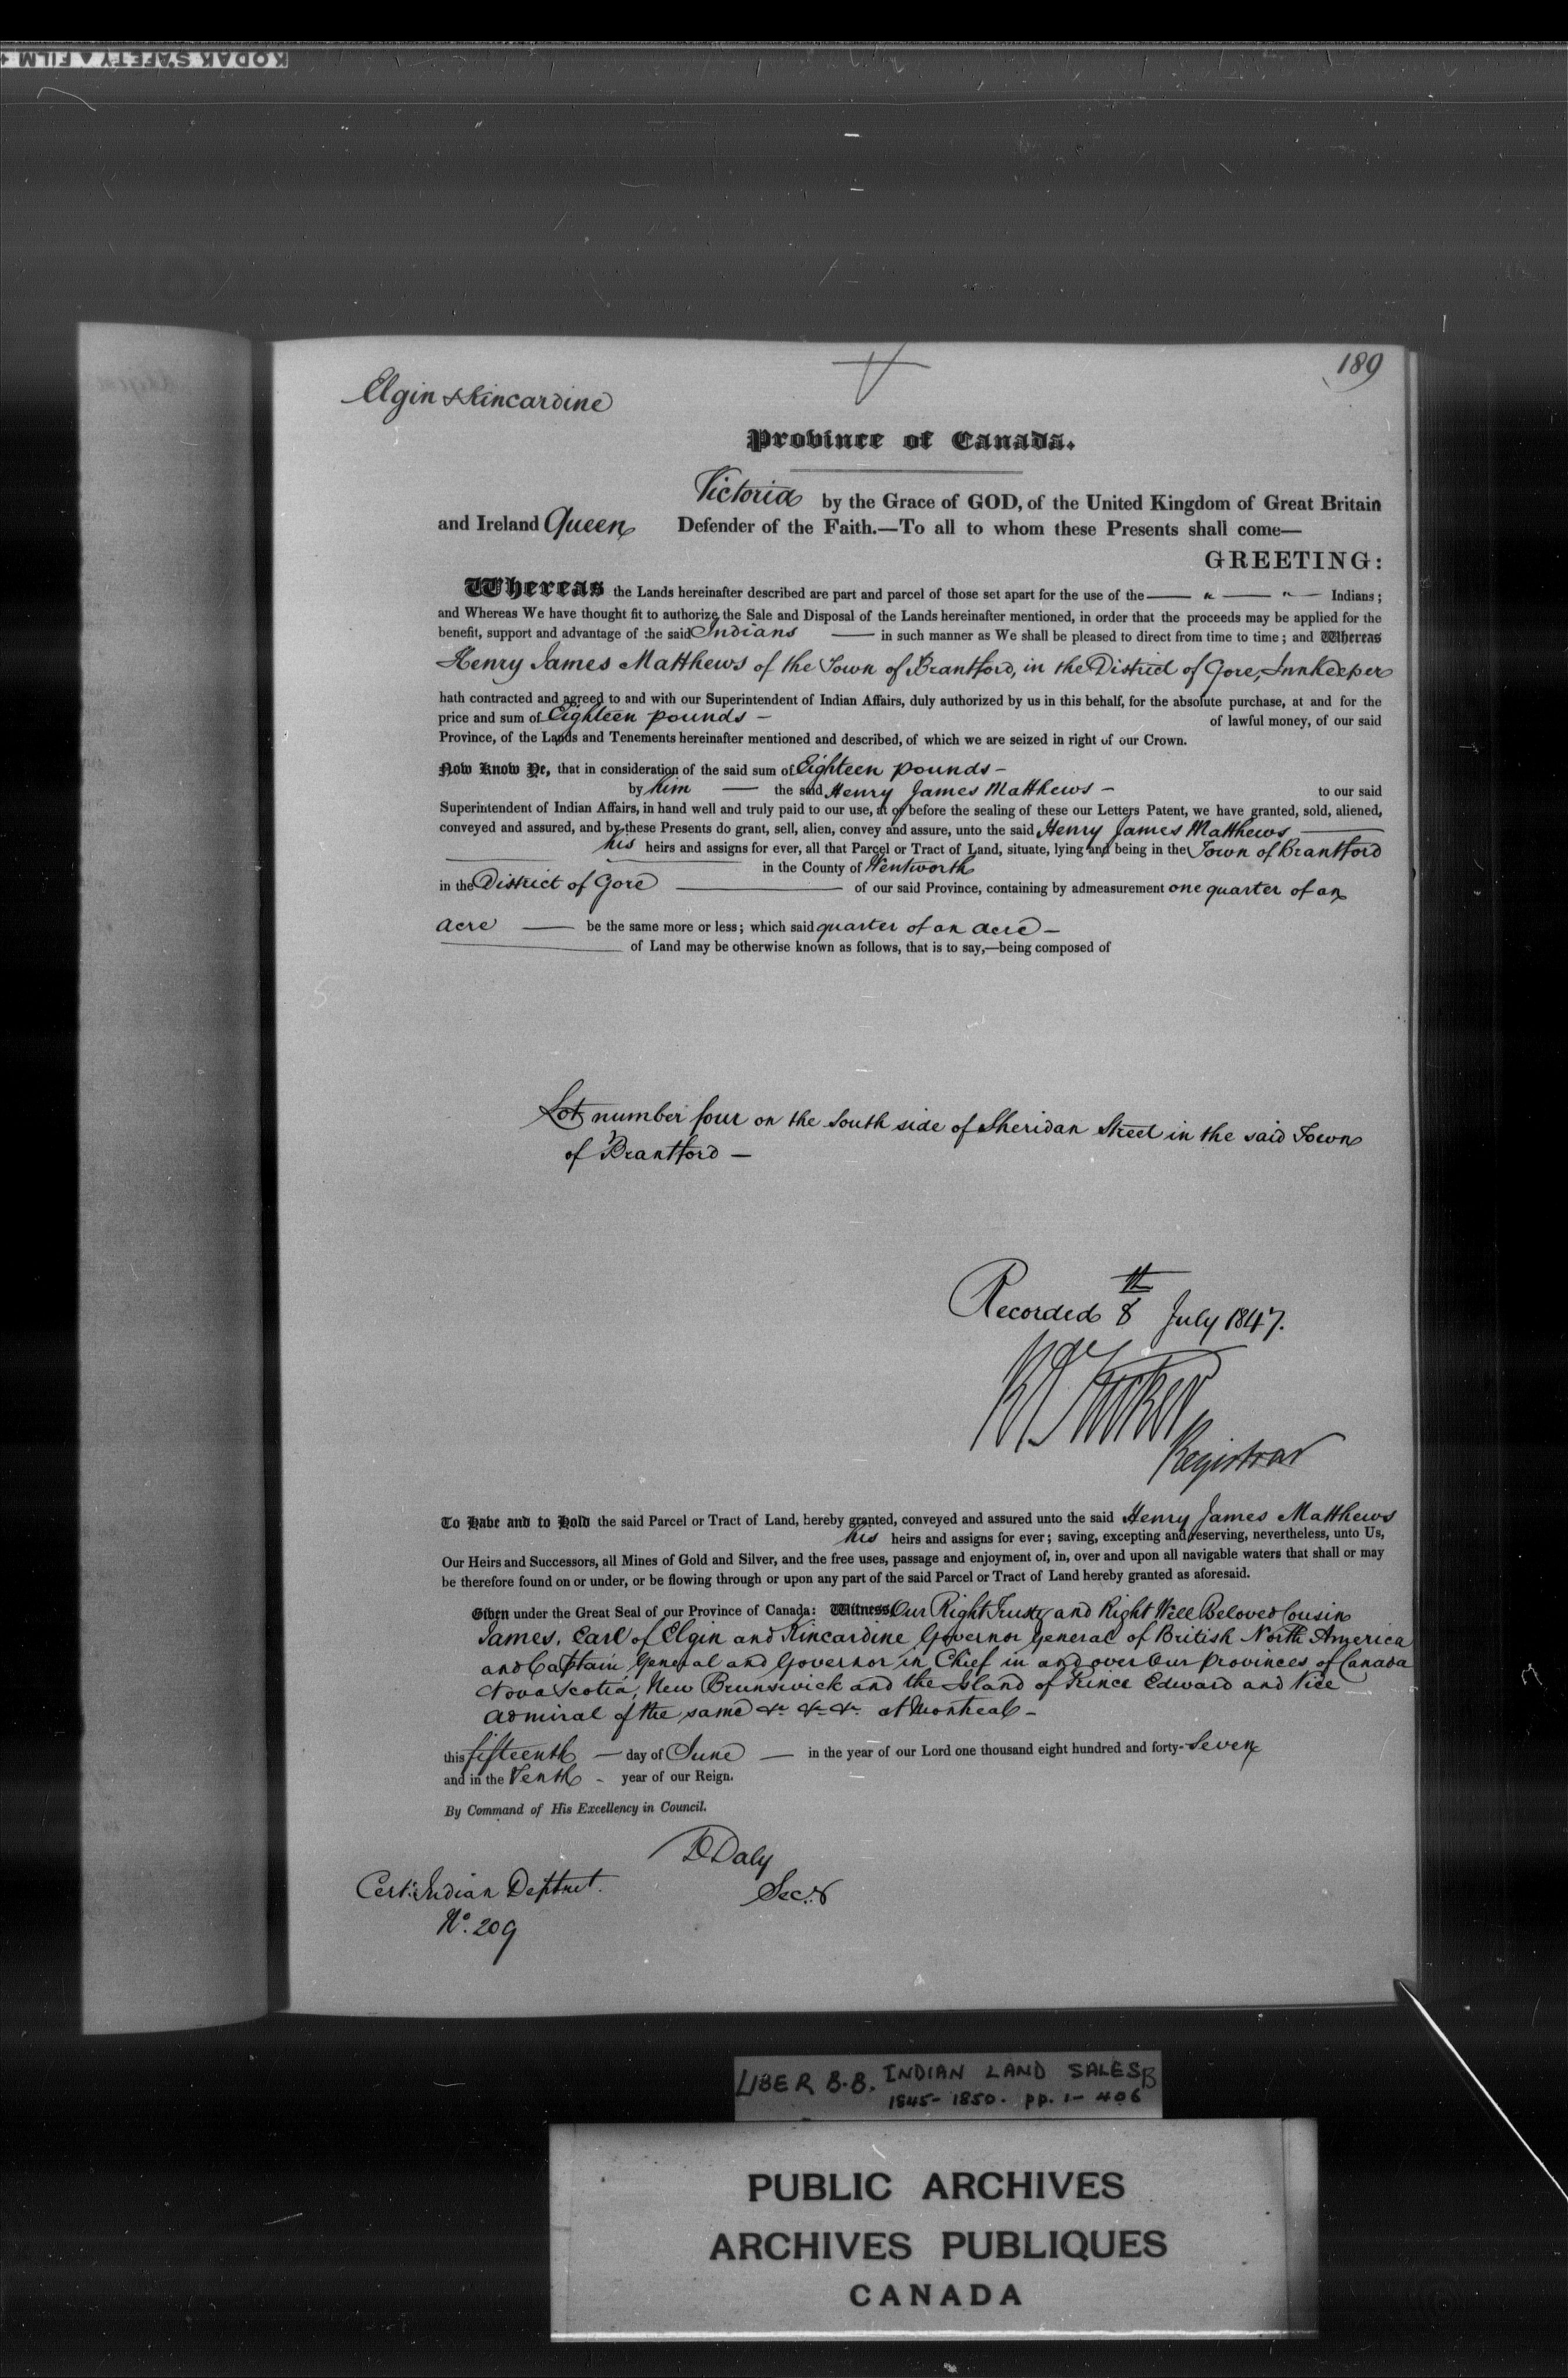 KODAK SAFETY FILM
189
Elgin & Kincardine
Province of Canada.
Victoria by the Grace of GOD, of the United Kingdom of Great Britain
and Ireland Queen Defender of the Faith.—To all to whom these Presents shall come—
GREETING:
Whereas the Lands hereinafter described are part and parcel of those set apart for the use of the — " — " — Indians;
and Whereas We have thought fit to authorize the Sale and Disposal of the Lands hereinafter mentioned, in order that the proceeds may be applied for the
benefit, support and advantage of the said Indians — in such manner as We shall be pleased to direct from time to time; and Whereas
Henry James Matthews of the Town of Brantford, in the District of Gore, Innkeeper
hath contracted and agreed to and with our Superintendent of Indian Affairs, duly authorized by us in this behalf, for the absolute purchase, at and for the
price and sum of Eighteen pounds — of lawful money, of our said
Province, of the Lands and Tenements hereinafter mentioned and described, of which we are seized in right of our Crown.
Now Know Ye, that in consideration of the said sum of Eighteen pounds —
by him — the said Henry James Matthews — to our said
Superintendent of Indian Affairs, in hand well and truly paid to our use, at or before the sealing of these our Letters Patent, we have granted, sold, aliened,
conveyed and assured, and by these Presents do grant, sell, alien, convey and assure, unto the said Henry James Matthews —
his heirs and assigns for ever, all that Parcel or Tract of Land, situate, lying and being in the Town of Brantford
— in the County of Wentworth
in the District of Gore — of our said Province, containing by admeasurement one quarter of an
acre — be the same more or less; which said quarter of an acre —
— of Land may be otherwise known as follows, that is to say,—being composed of
Lot number four on the South side of Sheridan Street in the said Town
of Brantford —
Recorded 8th July 1847.
R Tucker
Registrar
To Have and to Hold the said Parcel or Tract of Land, hereby granted, conveyed and assured unto the said Henry James Matthews
his heirs and assigns for ever; saving, excepting and reserving, nevertheless, unto Us,
Our Heirs and Successors, all Mines of Gold and Silver, and the free uses, passage and enjoyment of, in, over and upon all navigable waters that shall or may
be therefore found on or under, or be flowing through or upon any part of the said Parcel or Tract of Land hereby granted as aforesaid.
Given under the Great Seal of our Province of Canada: Witness, Our Right Trusty and Right Well Beloved Cousin
James, Earl of Elgin and Kincardine Governor General of British North America
and Captain General and Governor in Chief in and over Our Provinces of Canada
Nova Scotia, New Brunswick and the Island of Prince Edward and Vice
Admiral of the same &c &c &c. at Montreal —
this fifteenth — day of June — in the year of our Lord one thousand eight hundred and forty-Seven
and in the Tenth - year of our Reign.
By Command of His Excellency in Council.
D Daly
Secy
Cert. Indian Deptmt.
No. 209
LIBER B.B. INDIAN LAND SALES B
1845-1850. pp. 1-406
PUBLIC ARCHIVES
ARCHIVES PUBLIQUES
CANADA